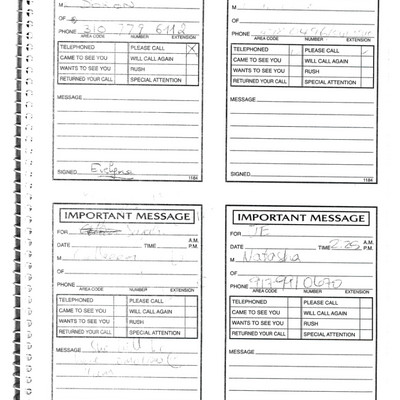 M Jason
OF
PHONE 310 779 6112
AREA CODE NUMBER EXTENSION
TELEPHONED PLEASE CALL X
CAME TO SEE YOU WILL CALL AGAIN
WANTS TO SEE YOU RUSH
RETURNED YOUR CALL SPECIAL ATTENTION
MESSAGE
SIGNED
1184
M
OF
PHONE
AREA CODE NUMBER EXTENSION
TELEPHONED PLEASE CALL
CAME TO SEE YOU WILL CALL AGAIN
WANTS TO SEE YOU RUSH
RETURNED YOUR CALL SPECIAL ATTENTION
MESSAGE
SIGNED
1184
IMPORTANT MESSAGE
FOR
DATE TIME A.M. P.M.
M
OF
PHONE
AREA CODE NUMBER EXTENSION
TELEPHONED PLEASE CALL
CAME TO SEE YOU WILL CALL AGAIN
WANTS TO SEE YOU RUSH
RETURNED YOUR CALL SPECIAL ATTENTION
MESSAGE
IMPORTANT MESSAGE
FOR JE
DATE TIME 2:25 A.M. P.M.
M Natasha
OF
PHONE
AREA CODE NUMBER EXTENSION
TELEPHONED PLEASE CALL
CAME TO SEE YOU WILL CALL AGAIN
WANTS TO SEE YOU RUSH
RETURNED YOUR CALL SPECIAL ATTENTION
MESSAGE